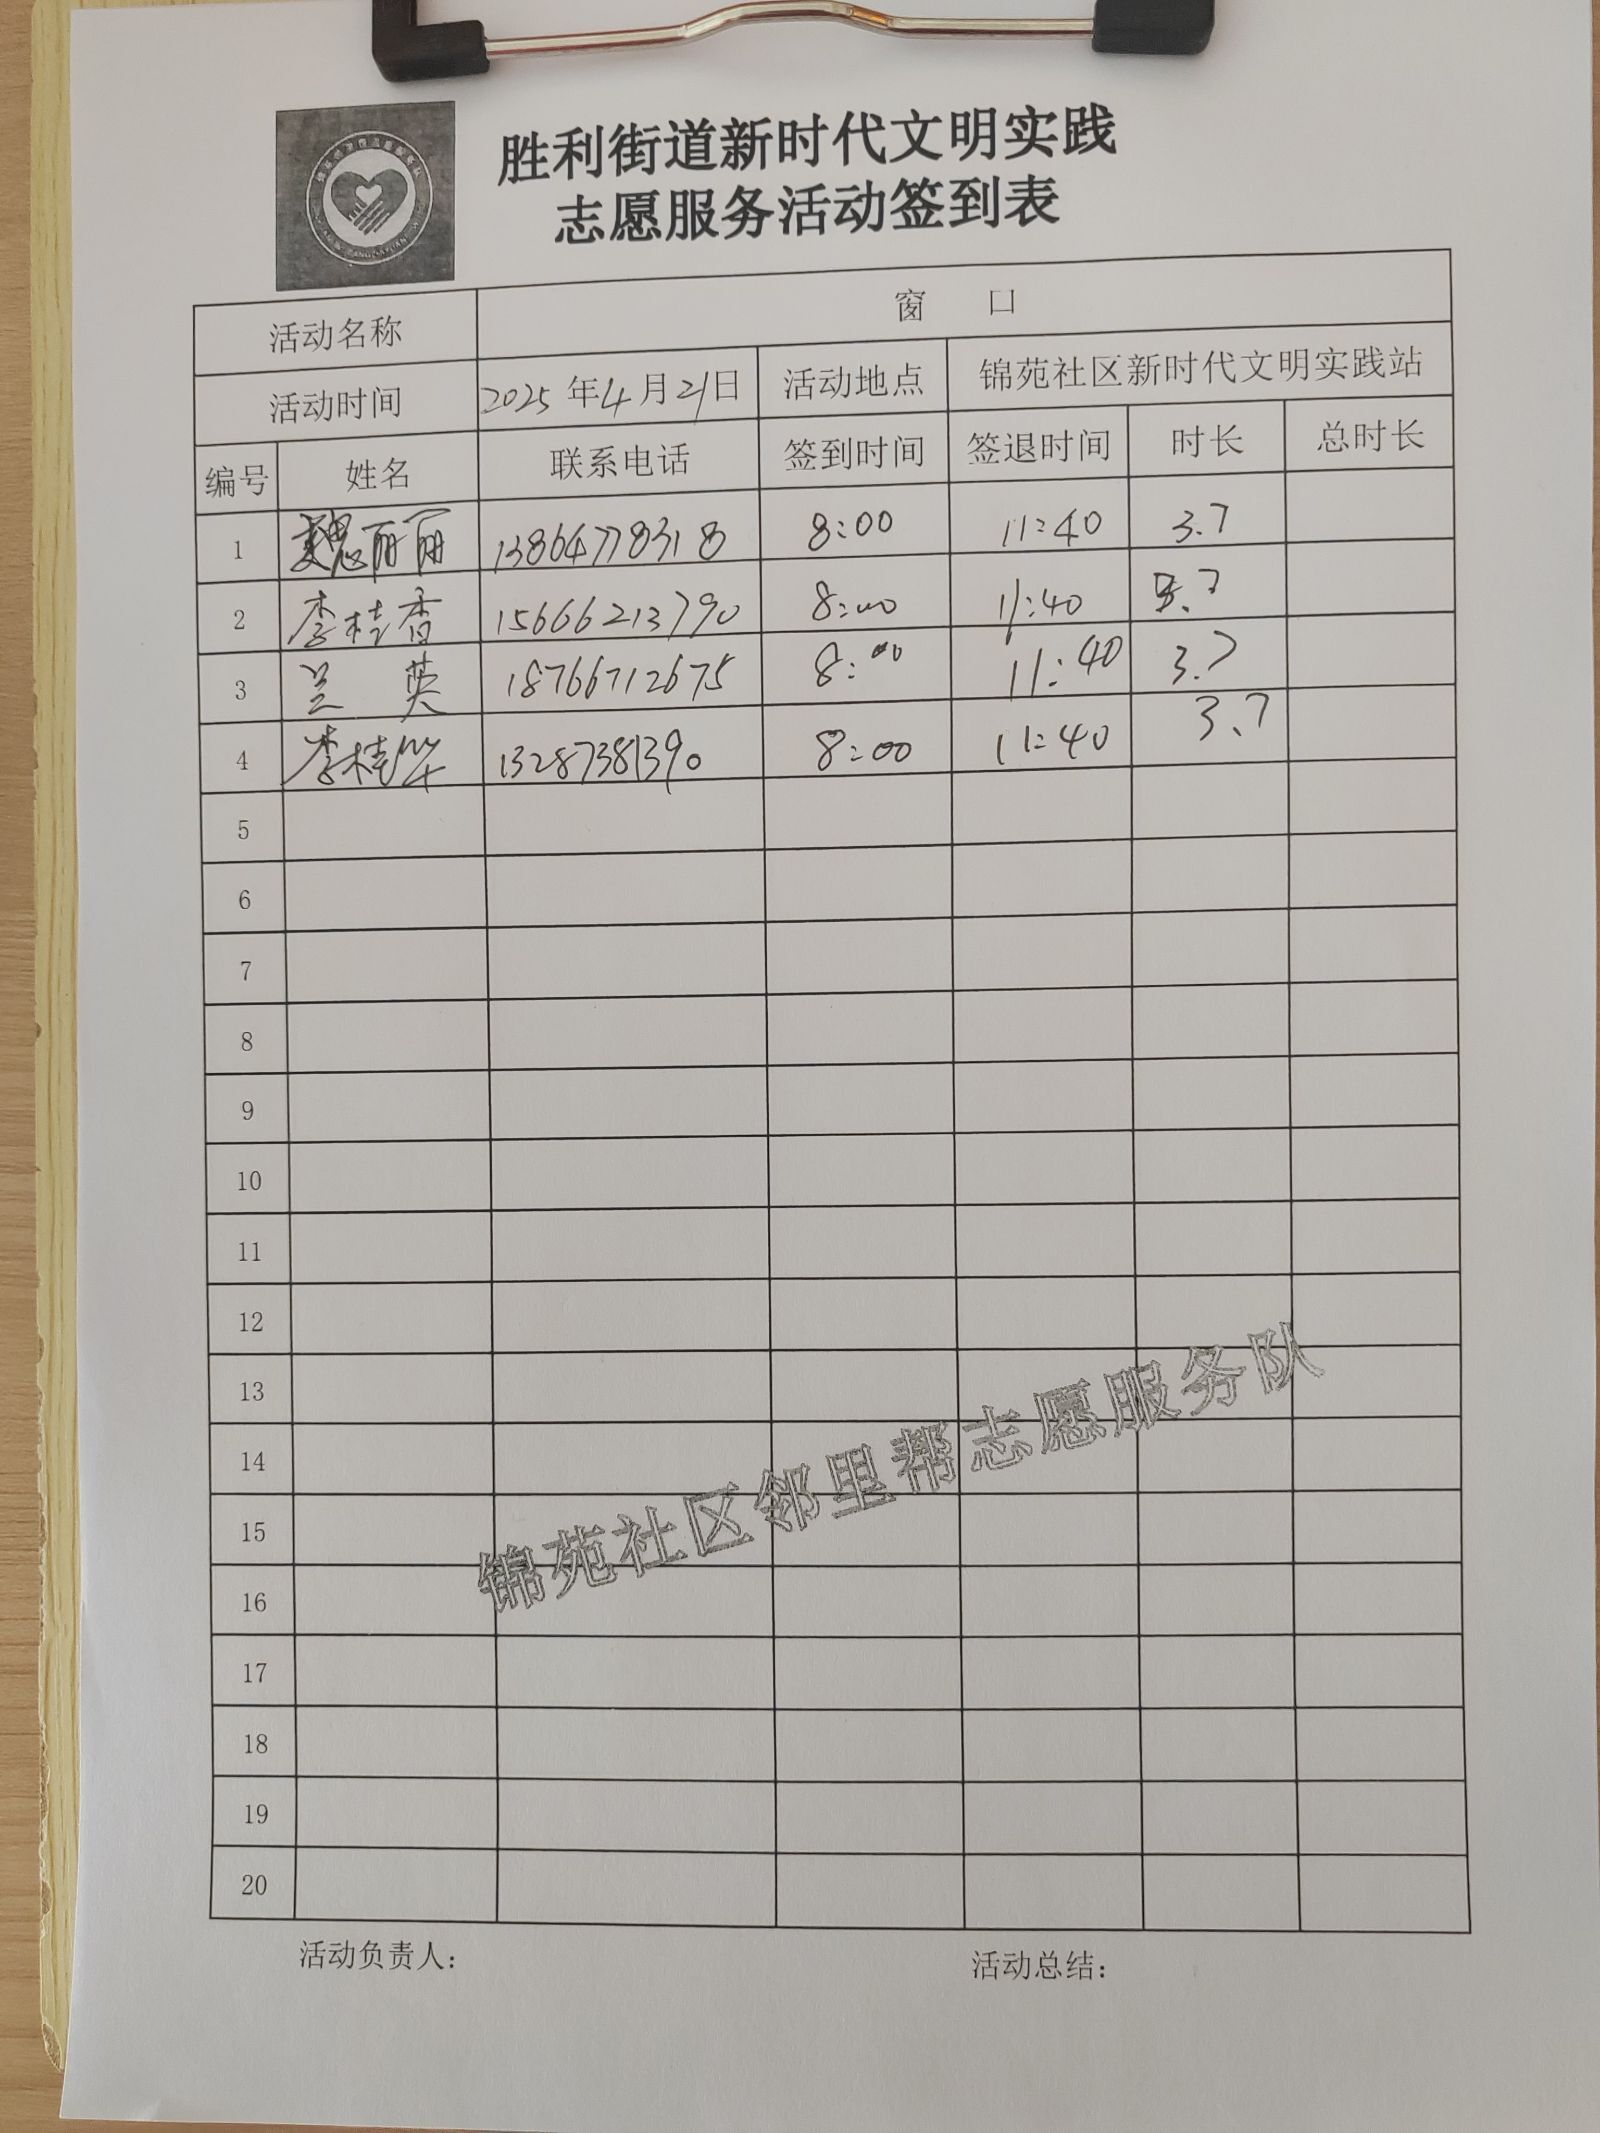 胜利街道新时代文明实践
志愿服务活动签到表
活动名称 窗 口
活动时间 2025年4月21日 活动地点 锦苑社区新时代文明实践站
编号 姓名 联系电话 签到时间 签退时间 时长 总时长
1 魏丽丽 13864778318 8:00 11:40 3.7
2 李桂香 15666213790 8:00 11:40 3.7
3 兰 英 18766712675 8:00 11:40 3.7
4 李桂华 13287381390 8:00 11:40 3.7
5
6
7
8
9
10
11
12
13
14
15
16
17
18
19
20
锦苑社区邻里帮志愿服务队
活动负责人： 活动总结：